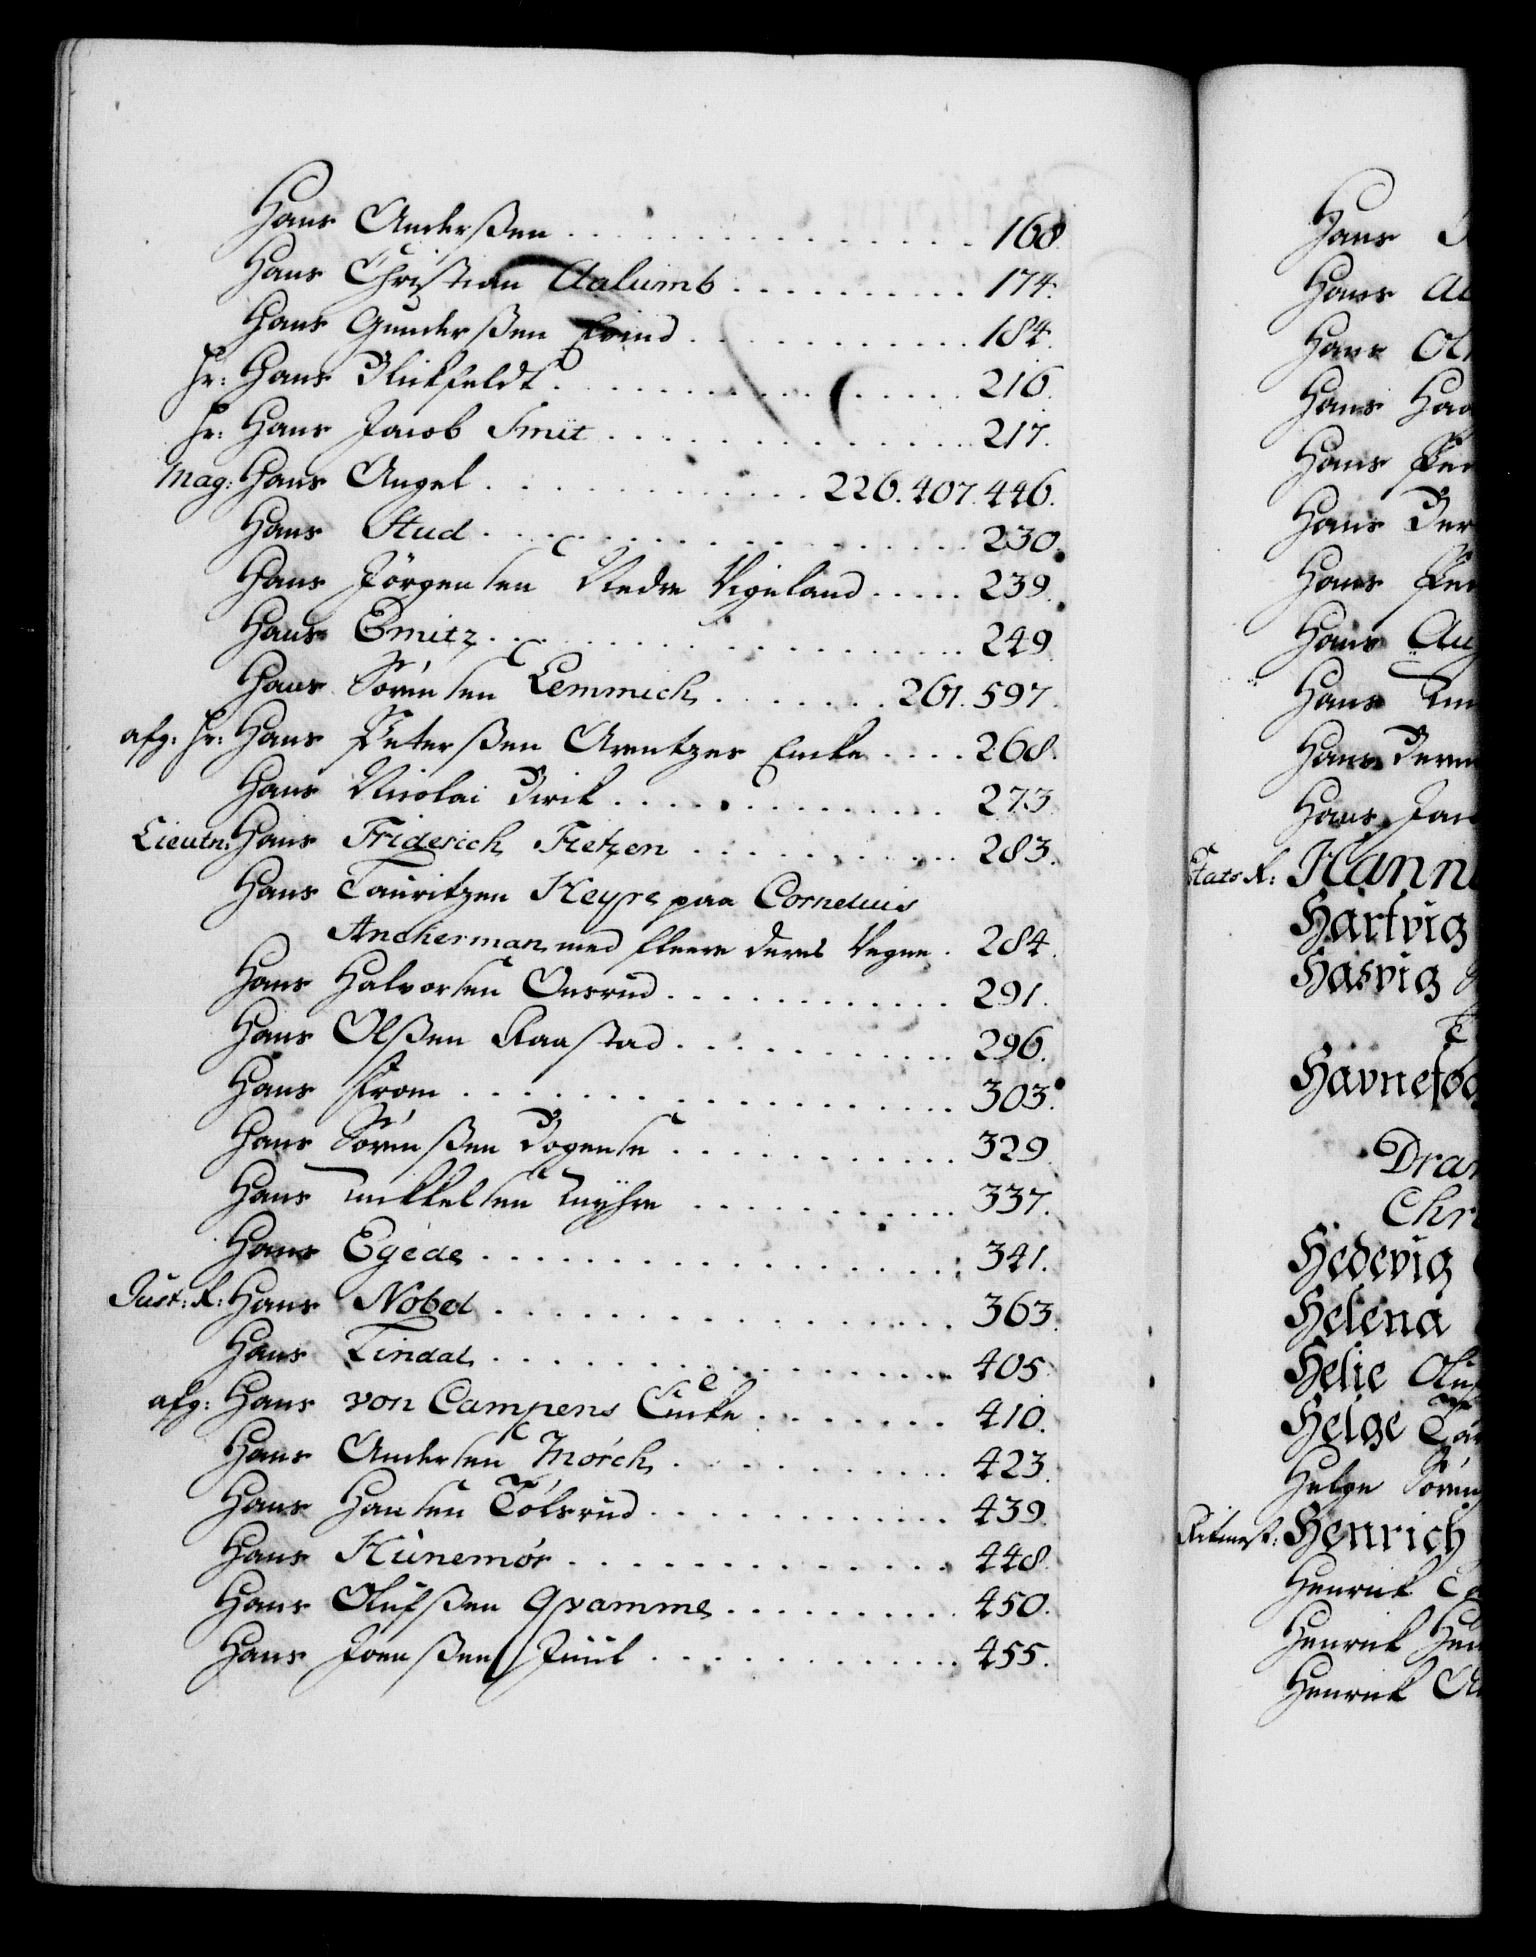 Hans Anderssen . . . 168.
Hans Christian Aalumb . . . 174.
Hans Gunderssen Evind . . . 184.
Hr: Hans Blickfeldt . . . 216.
Hr: Hans Jacob Smit . . . 217.
Mag: Hans Angel . . . 226. 407. 446.
Hans Stud . . . 230.
Hans Jörgensen Nedre Vigeland . . . 239.
Hans Smitz . . . 249.
Hans Sörensen Lemmich . . . 261. 597.
afg: Hr: Hans Peterssen Arentzes Encke . . . 268.
Hans Nicolai Birck . . . 273.
Lieutn: Hans Friderich Fretzen . . . 283.
Hans Lauritzen Heyre paa Cornelius
Ancherman med fleere deres Vegne . 284.
Hans Halvorsen Onsrud . . . 291.
Hans Olssen Raastad . . . 296.
Hans From . . . 303.
Hans Sörenssen Bogense . . . 329.
Hans Mikkelsen Myhre . . . 337.
Hans Egede . . . 341.
Just: R: Hans Nobel . . . 363.
Hans Lindal . . . 405.
afg: Hans von Campens Encke . . . 410.
Hans Andersen Mörch . . . 423.
Hans Hansen Tölsrud . . . 439.
Hans Hünemör . . . 448.
Hans Olufssen Qvamme . . . 450.
Hans Joenssen Juul . . . 455.
Hans
Hans
Hans
Hans
Hans
Hans
Hans
Hans
Hans
Hans
Hans
Stats R:
Hartvig
Hasvig
Hedevig
Helena
Helie
Helge
Helge Sören
Ritmest: Henrich
Henrick
Henrick
Henrick